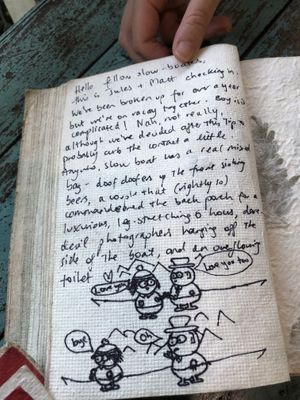 Hello fellow slow-boaters,
this is Jules + Matt checking in.
We've been broken up for over a year
but we're on vacay together. Boy is it
complicated! Nah, not really,
although we've decided after this trip to
probably curb the contact a little.
Anywho, slow boat was a real mixed
bag - doof doofers up the front sinking
beers, a couple that (rightly so)
commandeered the back porch for a
luxurious, leg-stretching 6 hours, dare
devil photographers hanging off the
side of the boat, and an overflowing
toilet
Love you
Love you too
bye!
Oh